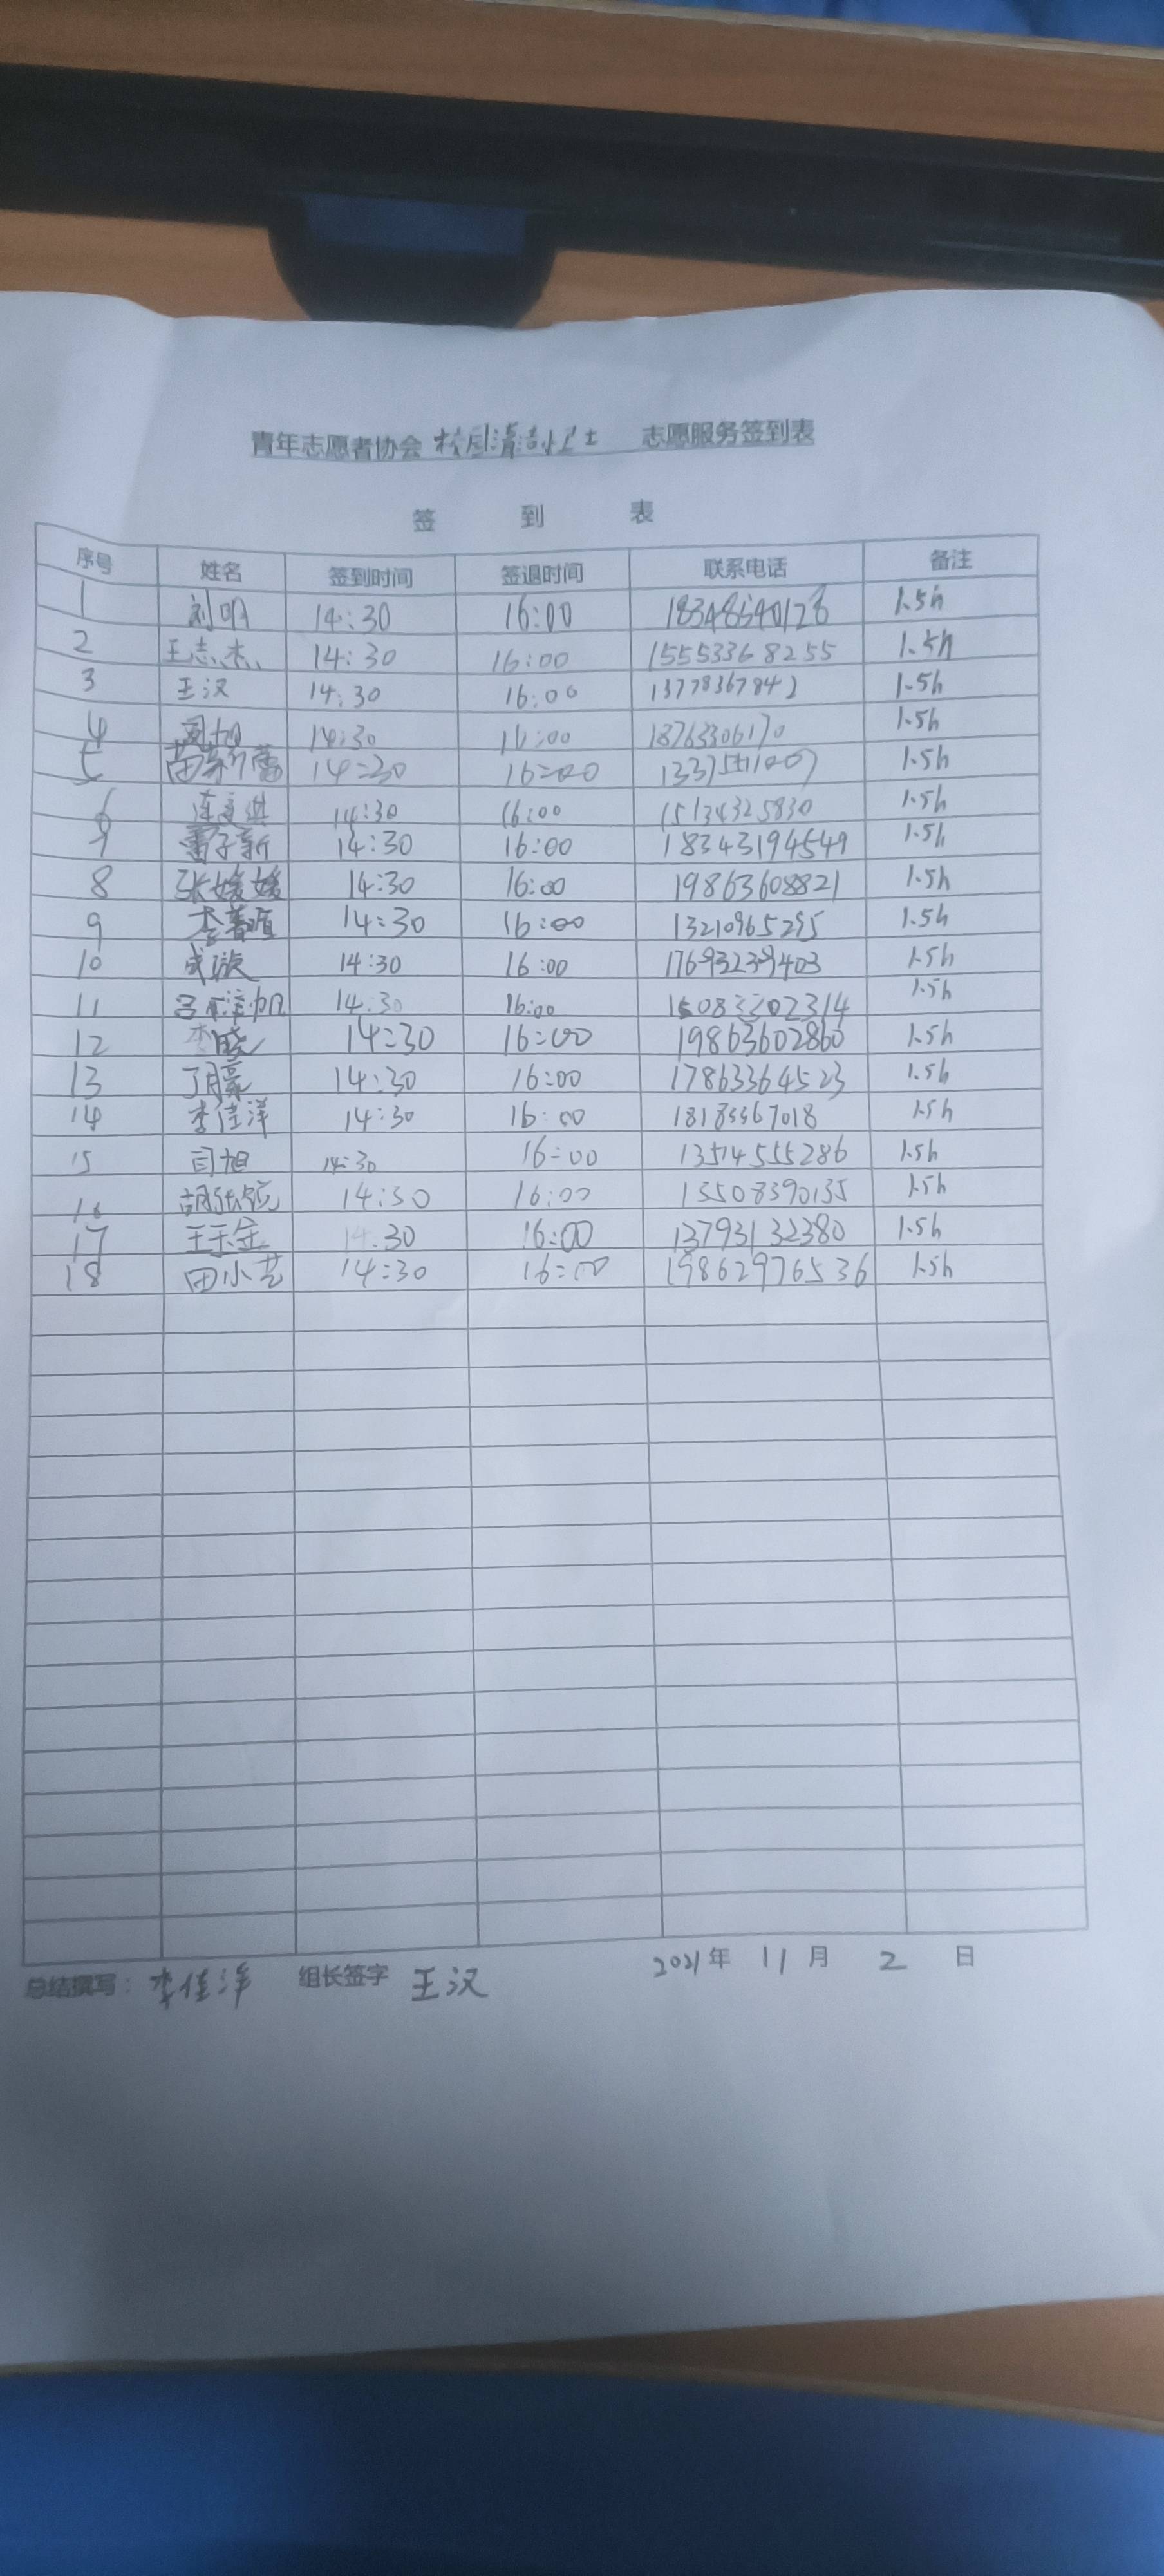 青年志愿者协会 校园清洁小卫士 志愿服务签到表
签 到 表
序号 姓名 签到时间 签退时间 联系电话 备注
1 刘明 14:30 16:00 1.5h
2 王志杰 14:30 16:00 15553368255 1.5h
3 王汉 14:30 16:00 13778367842 1.5h
4 14:30 16:00 18763306170 1.5h
5 14:30 16:00 1.5h
6 14:30 16:00 15134325830 1.5h
7 子新 14:30 16:00 18343194549 1.5h
8 张媛媛 14:30 16:00 19863608821 1.5h
9 14:30 16:00 13210965295 1.5h
10 14:30 16:00 17693239403 1.5h
11 14:30 16:00 15083302314 1.5h
12 李晓 14:30 16:00 19863602860 1.5h
13 14:30 16:00 17863364523 1.5h
14 李佳洋 14:30 16:00 18183367018 1.5h
15 闫旭 14:30 16:00 13514555286 1.5h
16 14:30 16:00 13508390135 1.5h
17 王玉金 14:30 16:00 13793132380 1.5h
18 田小艺 14:30 16:00 19862976536 1.5h
总结撰写: 李佳洋 组长签字 王汉 2021年 11月 2 日